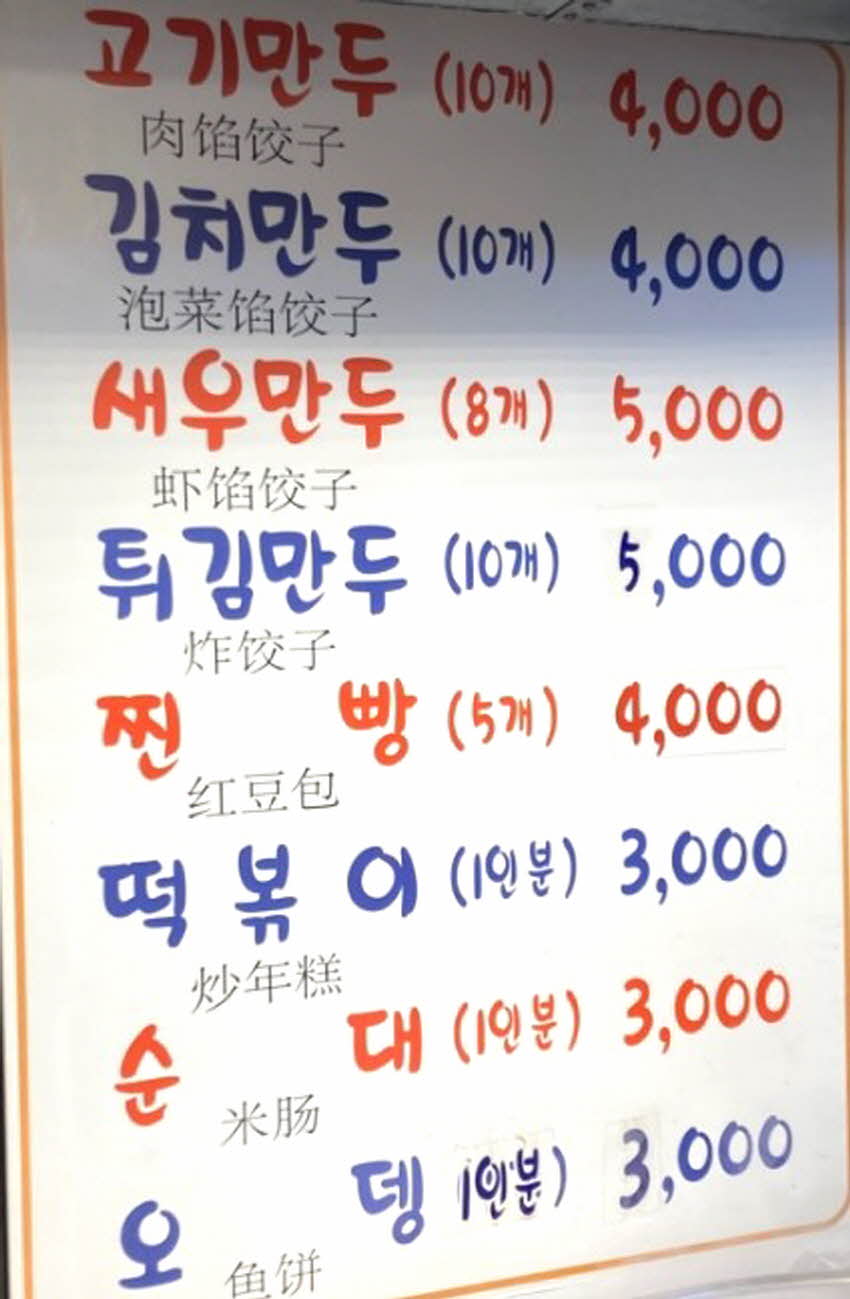 고기만두 (10개) 4,000
肉馅饺子
김치만두 (10개) 4,000
泡菜馅饺子
새우만두 (8개) 5,000
虾馅饺子
튀김만두 (10개) 5,000
炸饺子
찐빵 (5개) 4,000
红豆包
떡볶이 (1인분) 3,000
炒年糕
순대 (1인분) 3,000
米肠
오뎅 1인분) 3,000
鱼饼